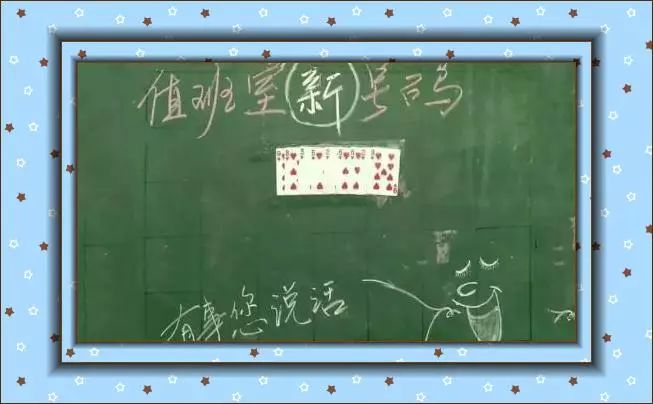 值班室新号码
有事您说话